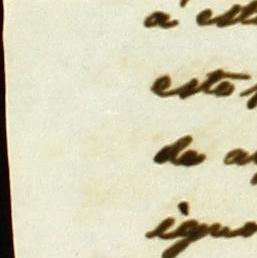 á est
este
de a
igno